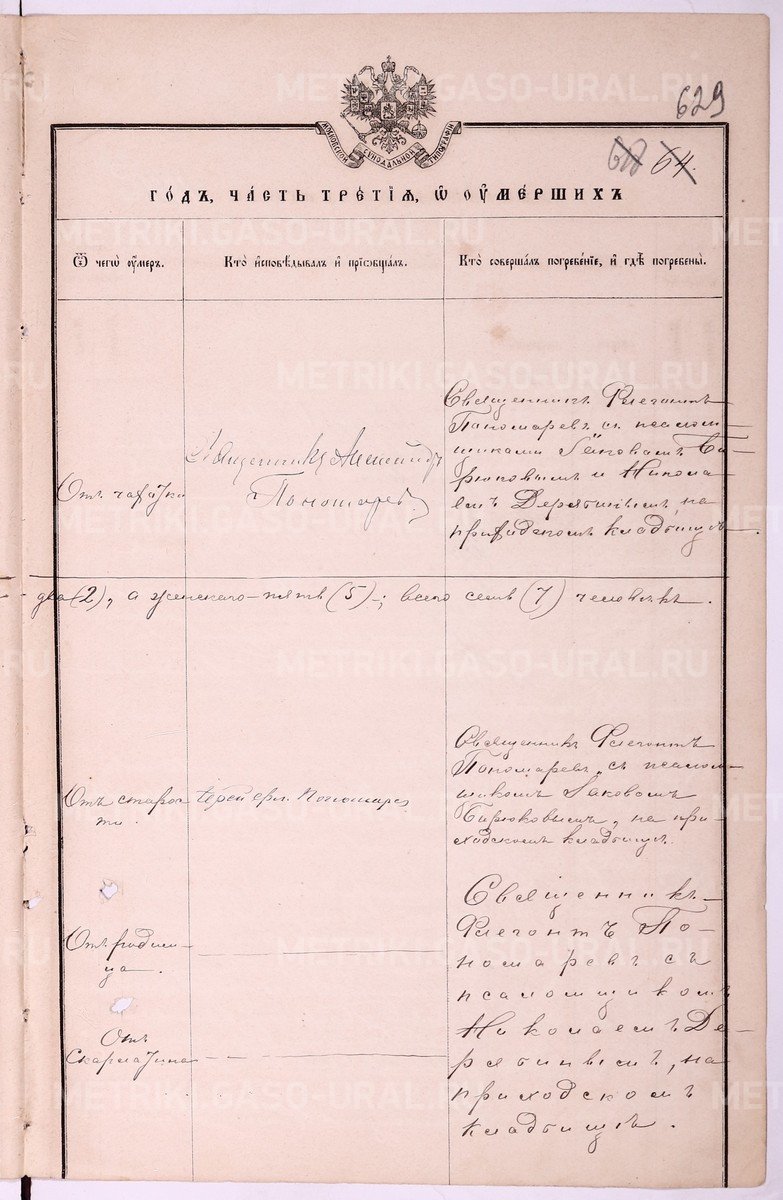 629
64.
МОСКОВСКОЙ СѴНОДАЛЬНОЙ ТИПОГРАФІИ
ГОДЪ, ЧАСТЬ ТРЕТІЯ, Ѿ ОУМЕРШИХЪ
Ѿ чегѡ оумеръ.
Кто исповѣдывалъ и пріѡбщалъ.
Кто совершалъ погребеніе, и гдѣ погребены.
Отъ чахотки
Священникъ Алексѣй
Пономаревъ
Священникъ Флегонтъ
Пономаревъ съ псалом-
щиками Іаковомъ Би-
рюковымъ и Никола-
емъ Дерябинымъ, на
приходскомъ кладбищѣ.
два (2), а женскаго - пять (5) -; всего семь (7) человѣкъ.
Отъ старос-
ти.
Іерей Пономарев
Священникъ Флегонтъ
Пономаревъ, съ псалом-
щикомъ Іаковомъ
Бирюковымъ, на при-
ходскомъ кладбищѣ.
Отъ родим-
ца.
Священникъ
Флегонтъ По-
номаревъ съ
псаломщикомъ
Николаемъ Де-
рябинымъ, на
приходскомъ
кладбищѣ.
Отъ
Скарлатина
METRIKI.GASO-URAL.RU